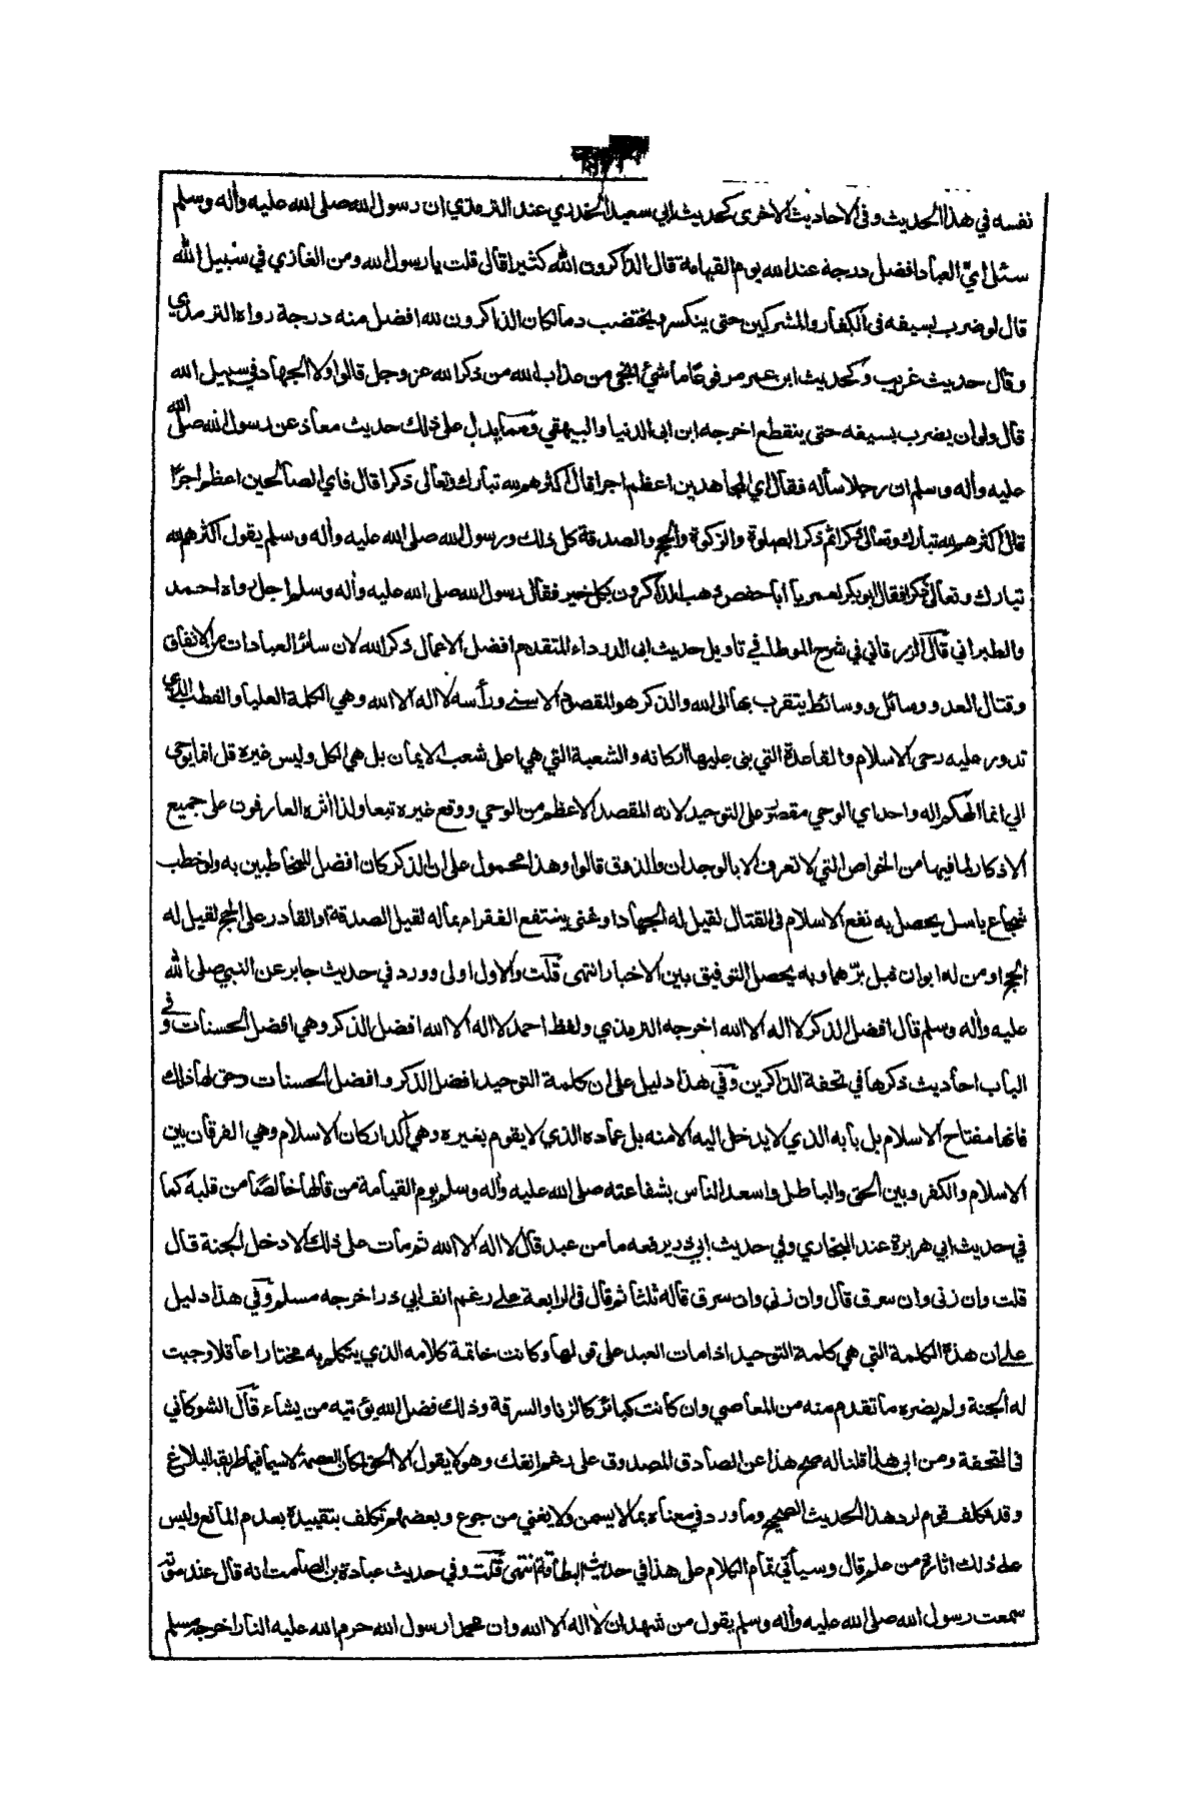 نفسه في هذا الحديث وفي الاحاديث الاخرى كحديث ابي سعيد الخدري عند الترمذي ان رسول الله صلى الله عليه واله وسلم
سئل اي العباد افضل درجة عند الله يوم القيامة قال الذاكرون الله كثيرا قال قلت يا رسول الله ومن الغازي في سبيل الله
قال لو ضرب بسيفه في الكفار والمشركين حتى ينكسر ويختضب دما لكان الذاكرون لله افضل منه درجة رواه الترمذي
وقال حديث غريب وكحديث ابن عمر مرفوعا ما شيئ انجى من عذاب الله من ذكر الله عز وجل قالوا ولا الجهاد في سبيل الله
قال ولو ان يضرب بسيفه حتى ينقطع اخرجه ابن ابي الدنيا والبيهقي ومما يدل على ذلك حديث معاذ عن رسول الله صلى الله
عليه واله وسلم ان رجلا سأله فقال اي المجاهدين اعظم اجرا قال اكثرهم لله تبارك وتعالى ذكرا قال فاي الصالحين اعظم اجرا
قال اكثرهم لله تبارك وتعالى ذكرا ثم ذكر الصلوة والزكوة والحج والصدقة كل ذلك ورسول الله صلى الله عليه واله وسلم يقول اكثرهم لله
تبارك وتعالى ذكرا فقال ابو بكر لعمر يا أبا حفص ذهب الذاكرون بكل خير فقال رسول الله صلى الله عليه واله وسلم اجل رواه احمد
والطبراني قال الزرقاني في شرح الموطا في تاويل حديث ابي الدرداء المتقدم افضل الاعمال ذكر الله لان سائر العبادات من الانفاق
وقتال العدو وسائل ووسائط يتقرب بها الى الله والذكر هو المقصود الاسنى ورأسه لا اله الا الله وهي الكلمة العليا والقطب الذي
تدور عليه رحى الاسلام والقاعدة التي بني عليها اركانه والشعبة التي هي اعلى شعب الايمان بل هي الكل وليس غيره قل انما يوحى
الي انما الهكم اله واحد اي الوحي مقصور على التوحيد لانه المقصد الاعظم من الوحي ووقع غيره تبعا ولذا اثره العارفون على جميع
الاذكار لما فيها من الخواص التي لا تعرف الا بالوجدان والذوق قالوا وهذا محمول على ان الذكر كان افضل للمخاطبين به ولو خطب
شجاع باسل يحصل به نفع الاسلام في القتال لقيل له الجهاد او غني ينتفع الفقراء بماله لقيل الصدقة او القادر على الحج لقيل له
الحج او من له ابوان قيل برهما وبه يحصل التوفيق بين الاخبار انتهى قلت والاول اولى وورد في حديث جابر عن النبي صلى الله
عليه واله وسلم قال افضل الذكر لا اله الا الله اخرجه الترمذي ولفظ احمد لا اله الا الله افضل الذكر وهي افضل الحسنات وفي
الباب احاديث ذكرها في تحفة الذاكرين وفي هذا دليل على ان كلمة التوحيد افضل الذكر وافضل الحسنات وحق لها ذلك
فانها مفتاح الاسلام بل بابه الذي لا يدخل اليه الا منه بل عماده الذي لا يقوم بغيره وهي آكد اركان الاسلام وهي الفرقان بين
الاسلام والكفر وبين الحق والباطل واسعد الناس بشفاعته صلى الله عليه واله وسلم يوم القيامة من قالها خالصا من قلبه كما
في حديث ابي هريرة عند البخاري وفي حديث ابي ذر يرفعه ما من عبد قال لا اله الا الله ثم مات على ذلك الا دخل الجنة قال
قلت وان زنى وان سرق قال وان زنى وان سرق قاله ثلثا ثم قال في الرابعة على رغم انف ابي ذر اخرجه مسلم وفي هذا دليل
على ان هذه الكلمة التي هي كلمة التوحيد اذا مات العبد على قولها وكانت خاتمة كلامه الذي يتكلم به مختارا عاقلا وجبت
له الجنة ولم يضره ما تقدم منه من المعاصي وان كانت كبائر كالزنا والسرقة وذلك فضل الله يؤتيه من يشاء قال الشوكاني
في التحفة ومن ابى هذا قلنا له صح هذا عن الصادق المصدوق على رغم انفك وهو لا يقول الا الحق لمكان العصمة لا سيما فيما طريقه البلاغ
وقد تكلف قوم لرد هذا الحديث الصحيح وما ورد في معناه بما لا يسمن ولا يغني من جوع وبعضهم تكلف بتقييده بعدم المانع وليس
على ذلك اثارة من علم قال وسيأتي تمام الكلام على هذا في حديث البطاقة انتهى قلت وفي حديث عبادة بن الصامت انه قال عند موته
سمعت رسول الله صلى الله عليه واله وسلم يقول من شهد ان لا اله الا الله وان محمدا رسول الله حرم الله عليه النار اخرجه مسلم